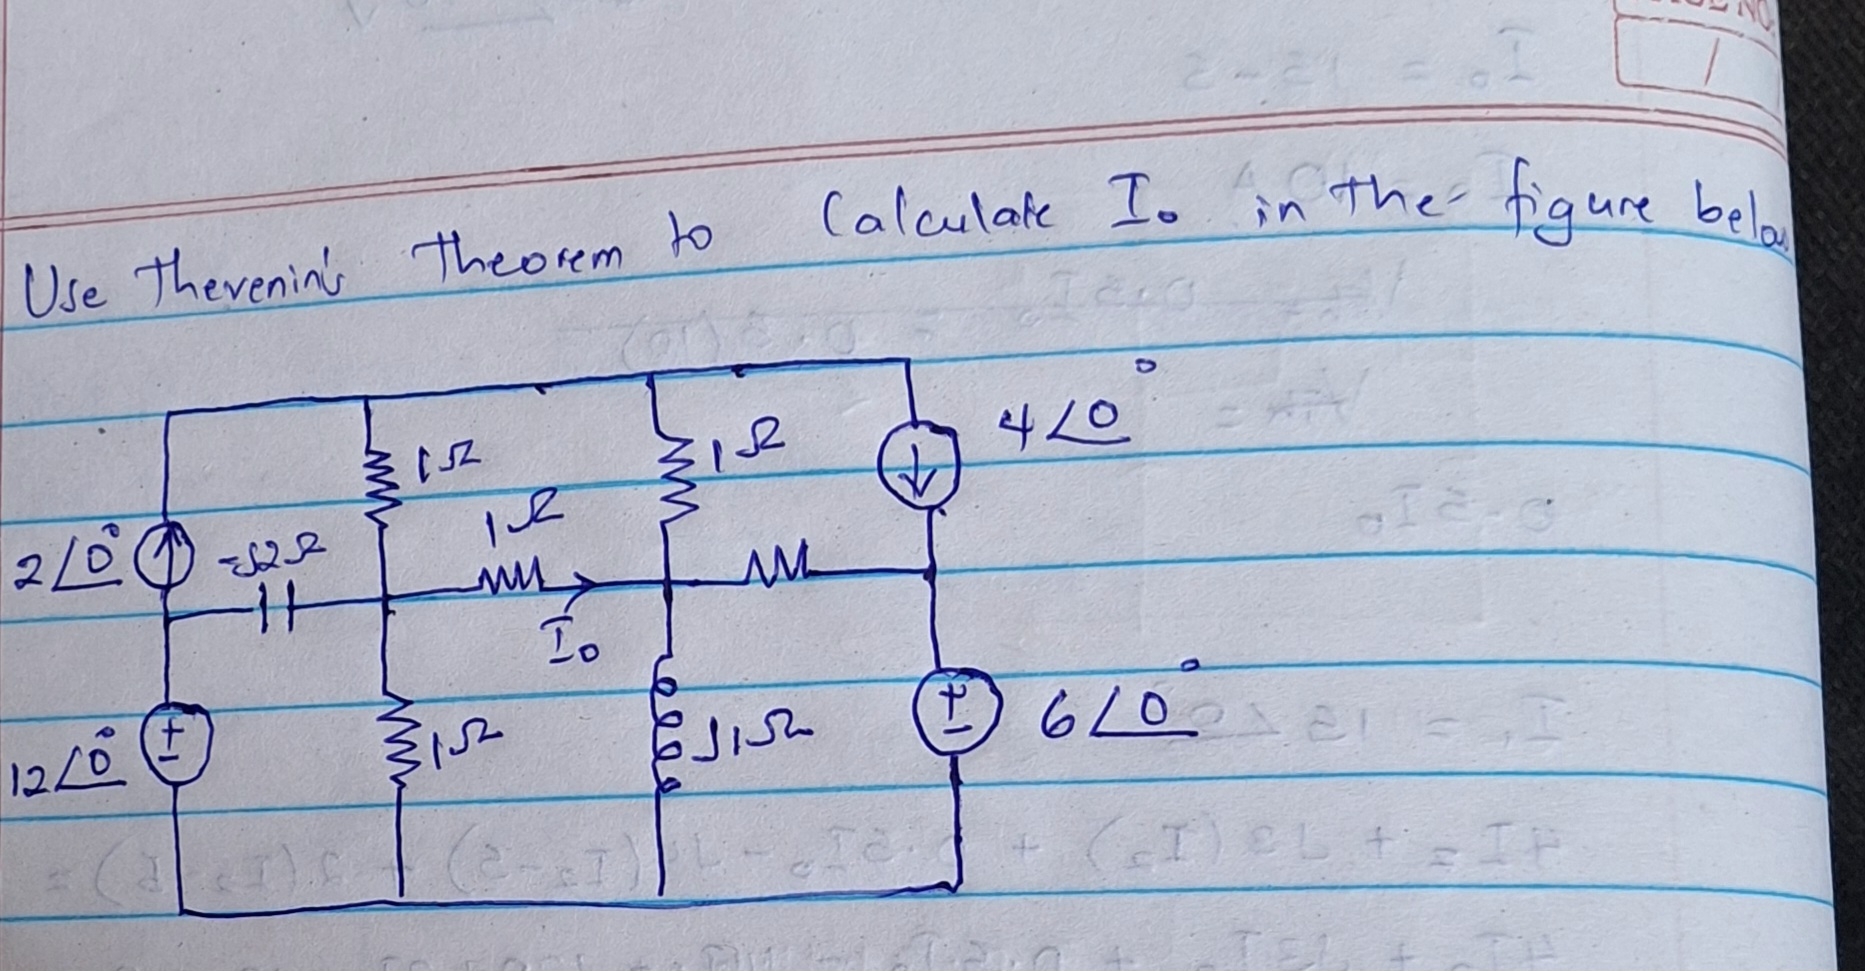 1
Use Thevenin's Theorem to Calculate I₀ in the figure
4∠0°
1Ω
1Ω
1Ω
2∠0°
-J2Ω
I₀
12∠0°
+
-
1Ω
J1Ω
+
-
6∠0°